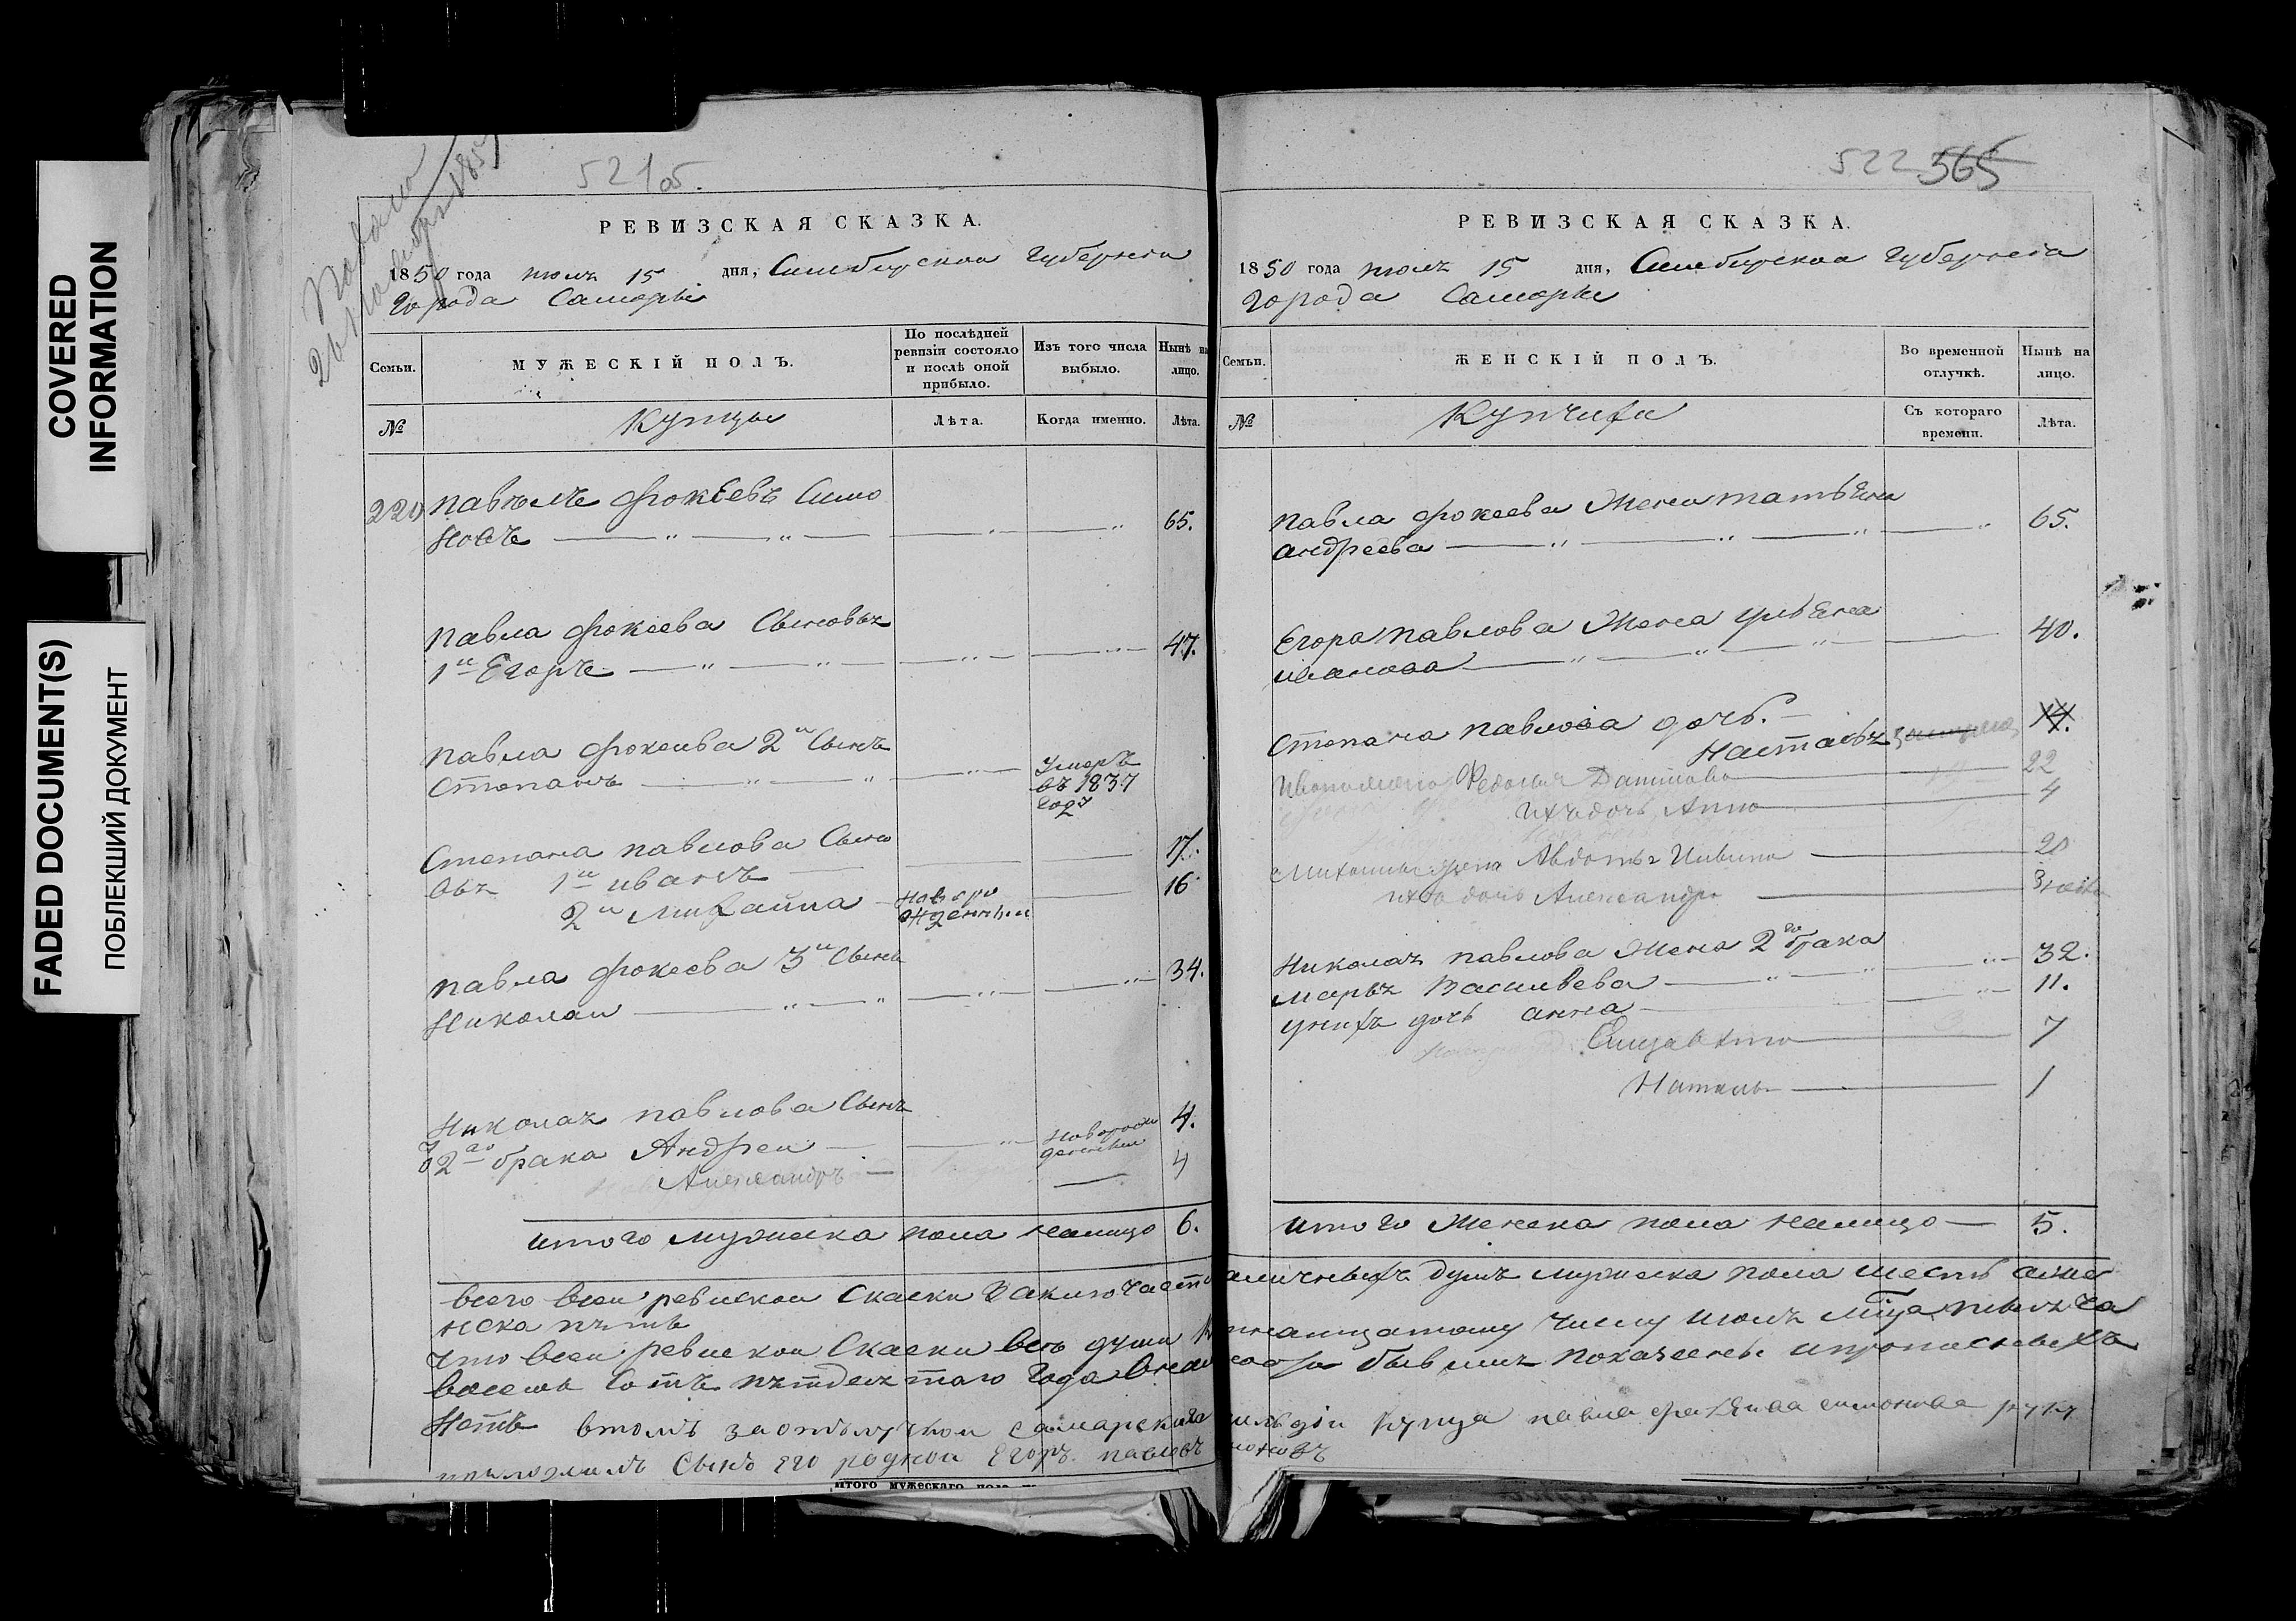 COVERED
INFORMATION
FADED DOCUMENT(S)
ПОБЛЕКШИЙ ДОКУМЕНТ
521об.
РЕВИЗСКАЯ СКАЗКА.
1850 года июля 15 дня, Симбирскаа Губерниа
Города Самары
Семьи. МУЖЕСКІЙ ПОЛЪ. По послѣдней ревизіи состояло и послѣ оной прибыло. Изъ того числа выбыло. Нынѣ на лицо.
№ Купцы Лѣта. Когда именно. Лѣта.
220 павълъ фокеевъ Симо
новъ 65.
павла фокеева Сыновья
1й Егоръ 47.
павла фокеева 2й Сынъ
Степанъ Умеръ
въ 1837
году
Степана павлова Сыно
вья 1й иванъ 17.
2й михаила новоро
жденный 16
павла фокеева 3й Сынъ 34.
Николаи
Николая павлова Сынъ 4.
2го брака Андреи новорож
денныи
Александръ 4
итого мужеска пола налицо 6.
522 565
РЕВИЗСКАЯ СКАЗКА.
1850 года июля 15 дня, Симбирскаа Губерниа
города Самары
Семьи. ЖЕНСКІЙ ПОЛЪ. Во временной отлучкѣ. Нынѣ на лицо.
№ Купчихи Съ котораго времени. Лѣта.
павла фокеева Жена татьЕна
андреева 65.
Егора павлова Жена ульЕна 40.
иванова
Степана павлова дочь 14.
Настасья
Федосья 22
ихъ дочь Анна 4
Михаилы жена Авдотья 20
ихъ дочь Александра
Николая павлова Жена 2го брака
марья Васильева 32.
унихъ дочь анна 11.
Елизавета 7
Наталья 1
итого Женска пола налицо 5.
всего всеи ревискои Скаски Заключается наличныхъ душъ мужеска пола шесть аже
нска пять
что всеи ревискои Скаски всъ души числу июля мца тысяча
восемь Сотъ пятдесятаго Года бывшия показаны ипрописныхъ
Нѣтъ втомъ Самарскиа гильдіи купца павла фокЕива симонова руку
приложилъ Сынъ Его роднои Егоръ павловъ
итого мужескаго пола